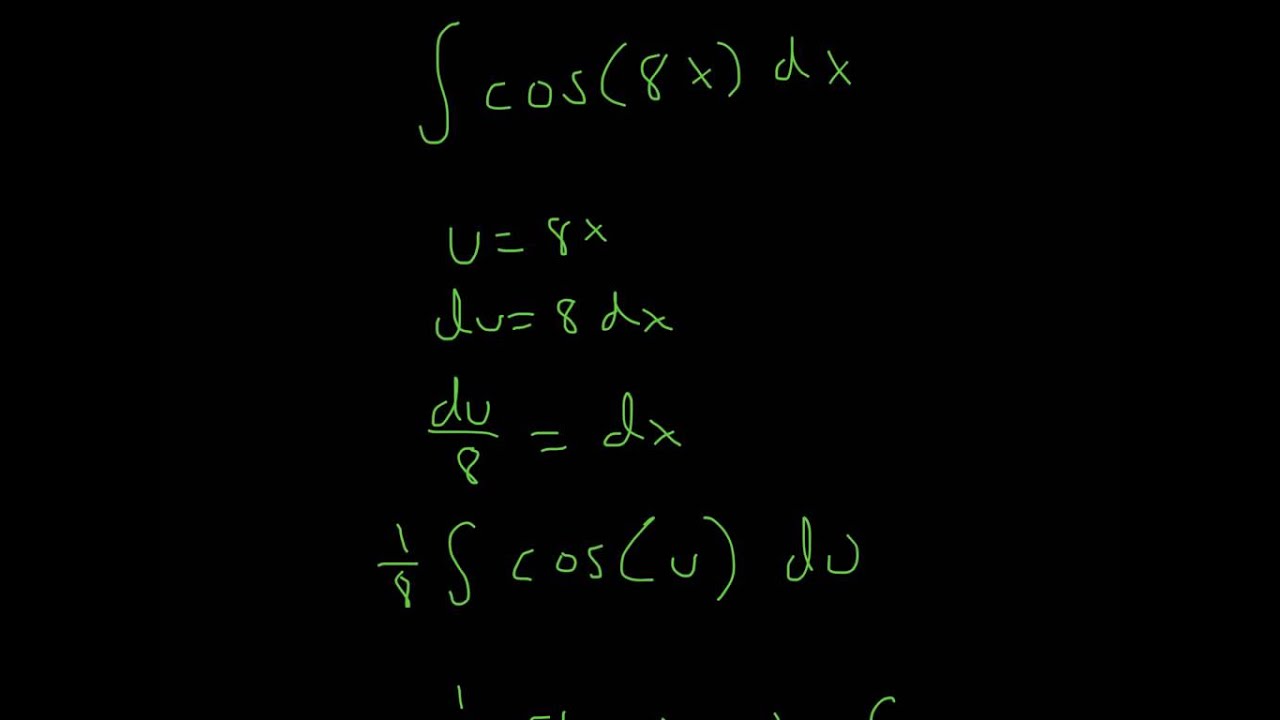 ∫ cos(8x) dx
u = 8x
du = 8 dx
du/8 = dx
1/8 ∫ cos(u) du